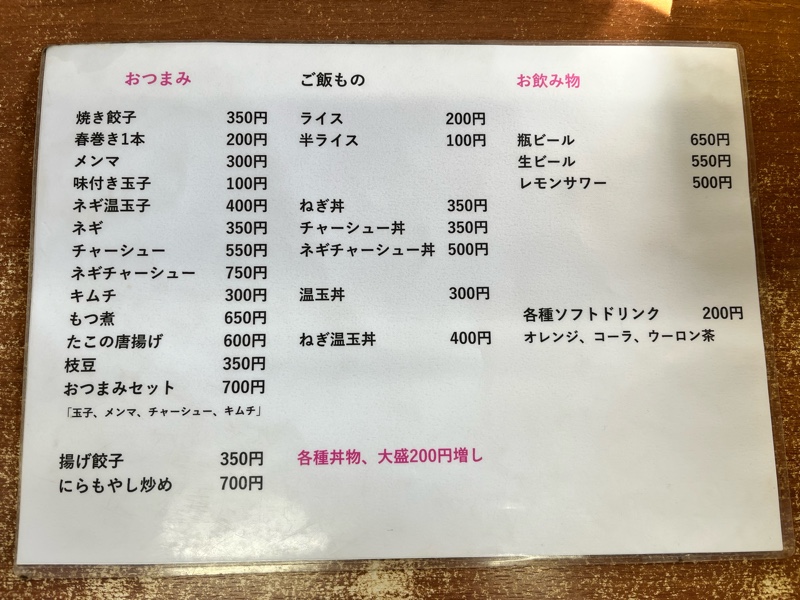 おつまみ
焼き餃子 350円
春巻き1本 200円
メンマ 300円
味付き玉子 100円
ネギ温玉子 400円
ネギ 350円
チャーシュー 550円
ネギチャーシュー 750円
キムチ 300円
もつ煮 650円
たこの唐揚げ 600円
枝豆 350円
おつまみセット 700円
「玉子、メンマ、チャーシュー、キムチ」
揚げ餃子 350円
にらもやし炒め 700円
ご飯もの
ライス 200円
半ライス 100円
ねぎ丼 350円
チャーシュー丼 350円
ネギチャーシュー丼 500円
温玉丼 300円
ねぎ温玉丼 400円
各種丼物、大盛200円増し
お飲み物
瓶ビール 650円
生ビール 550円
レモンサワー 500円
各種ソフトドリンク 200円
オレンジ、コーラ、ウーロン茶